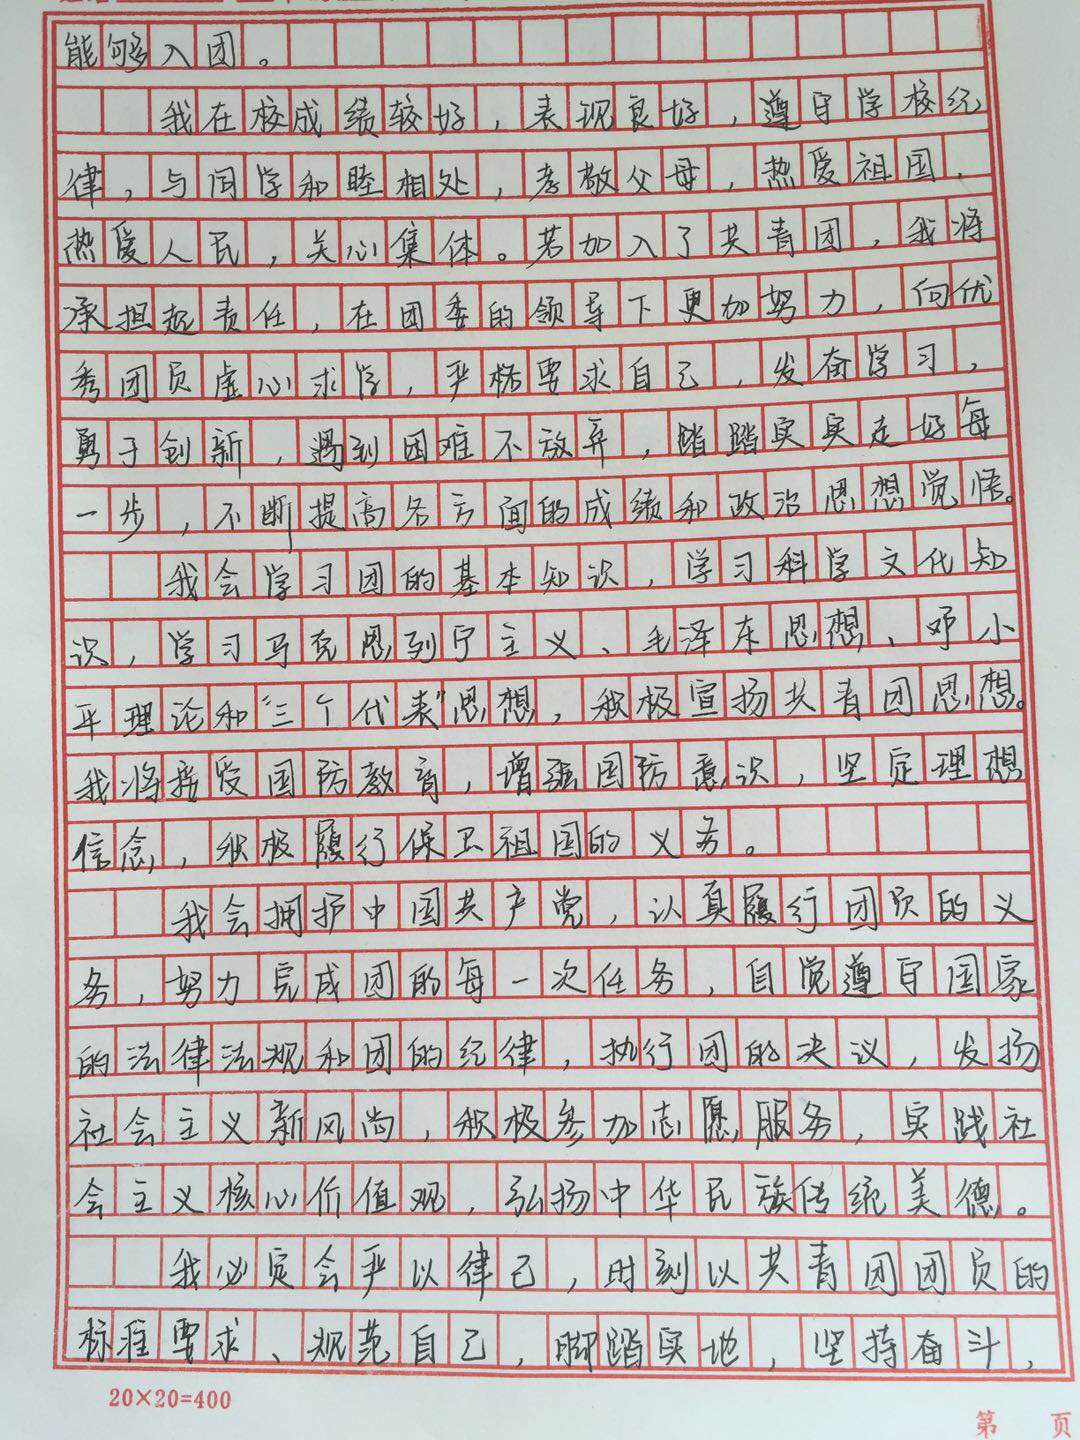 能够入团。
我在校成绩较好，表现良好，遵守学校纪
律，与同学和睦相处，孝敬父母，热爱祖国，
热爱人民，关心集体。若加入了共青团，我将
承担起责任，在团委的领导下更加努力，向优
秀团员虚心求学，严格要求自己，发奋学习，
勇于创新，遇到困难不放弃，踏踏实实走好每
一步，不断提高各方面的成绩和政治思想觉悟。
我会学习团的基本知识，学习科学文化知
识，学习马克思列宁主义、毛泽东思想、邓小
平理论和“三个代表”思想，积极宣扬共青团思想。
我将接受国防教育，增强国防意识，坚定理想
信念，积极履行保卫祖国的义务。
我会拥护中国共产党，认真履行团员的义
务，努力完成团的每一次任务，自觉遵守国家
的法律法规和团的纪律，执行团的决议，发扬
社会主义新风尚，积极参加志愿服务，实践社
会主义核心价值观，弘扬中华民族传统美德。
我必定会严以律己，时刻以共青团团员的
标准要求、规范自己，脚踏实地，坚持奋斗，
20×20=400
第 页